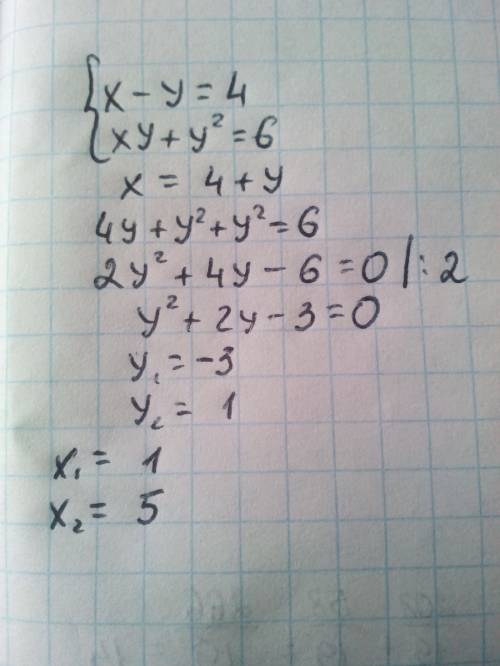 x - y = 4
xy + y² = 6
x = 4 + y
4y + y² + y² = 6
2y² + 4y - 6 = 0 |: 2
y² + 2y - 3 = 0
y₁ = -3
y₂ = 1
x₁ = 1
x₂ = 5